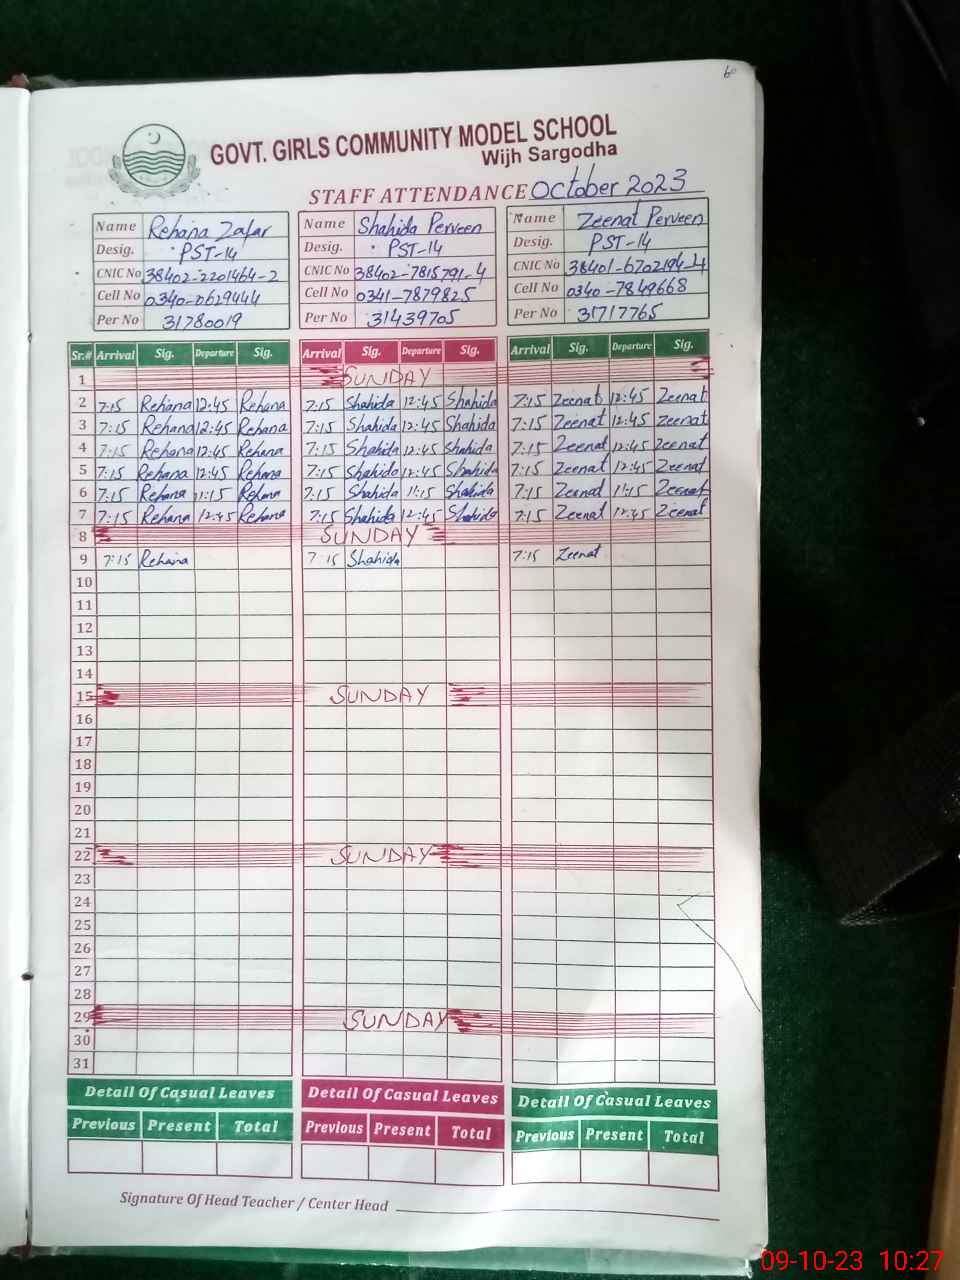 60
GOVT. GIRLS COMMUNITY MODEL SCHOOL
Wijh Sargodha
STAFF ATTENDANCE October 2023
Name Rehana Zafar Name Shahida Perveen Name Zeenat Perveen
Desig. PST-14 Desig. PST-14 Desig. PST-14
CNIC No 38402-2201464-2 CNIC No 38402-7815791-4 CNIC No 38401-6702194-4
Cell No 0340-0629444 Cell No 0341-7879825 Cell No 0340-7849668
Per No 31780019 Per No 31439705 Per No 31717765
Sr.# Arrival Sig. Departure Sig. Arrival Sig. Departure Sig. Arrival Sig. Departure Sig.
1 SUNDAY
2 7:15 Rehana 12:45 Rehana 7:15 Shahida 12:45 Shahida 7:15 Zeenat 12:45 Zeenat
3 7:15 Rehana 12:45 Rehana 7:15 Shahida 12:45 Shahida 7:15 Zeenat 12:45 Zeenat
4 7:15 Rehana 12:45 Rehana 7:15 Shahida 12:45 Shahida 7:15 Zeenat 12:45 Zeenat
5 7:15 Rehana 12:45 Rehana 7:15 Shahida 12:45 Shahida 7:15 Zeenat 12:45 Zeenat
6 7:15 Rehana 11:15 Rehana 7:15 Shahida 11:15 Shahida 7:15 Zeenat 11:15 Zeenat
7 7:15 Rehana 12:45 Rehana 7:15 Shahida 12:45 Shahida 7:15 Zeenat 12:45 Zeenat
8 SUNDAY
9 7:15 Rehana 7 15 Shahida 7:15 Zeenat
10
11
12
13
14
15 SUNDAY
16
17
18
19
20
21
22 SUNDAY
23
24
25
26
27
28
29 SUNDAY
30
31
Detail Of Casual Leaves Detail Of Casual Leaves Detail Of Casual Leaves
Previous Present Total Previous Present Total Previous Present Total
Signature Of Head Teacher / Center Head
09-10-23 10:27